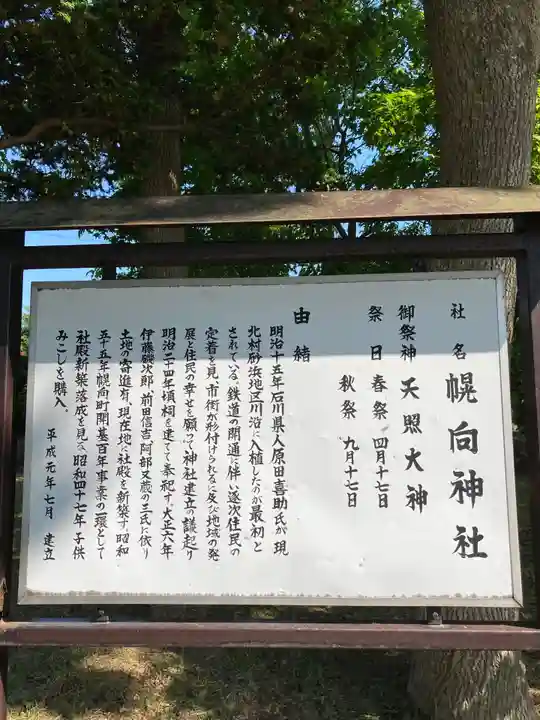 社名 幌向神社
御祭神 天照大神
祭日 春祭 四月十七日
秋祭 九月十七日
由緒
明治十五年石川県人原田喜助氏が現
北村砂浜地区川沿に入植したのが最初と
されている。鉄道の開通に伴い逐次住民の
定着を見、市街が形付けられるに及び地域の発
展と住民の幸せを願って神社建立の議起り
明治二十四年頃祠を建てて奉祀す。大正六年
伊藤醜次郎 前田信吉 阿部又蔵の三氏に依り
土地の寄進有、現在地に社殿を新築す。昭和
五十五年幌向町開基百年事業の一環として
社殿新築落成を見る。昭和四十七年子供
みこしを購入。
平成元年七月 建立